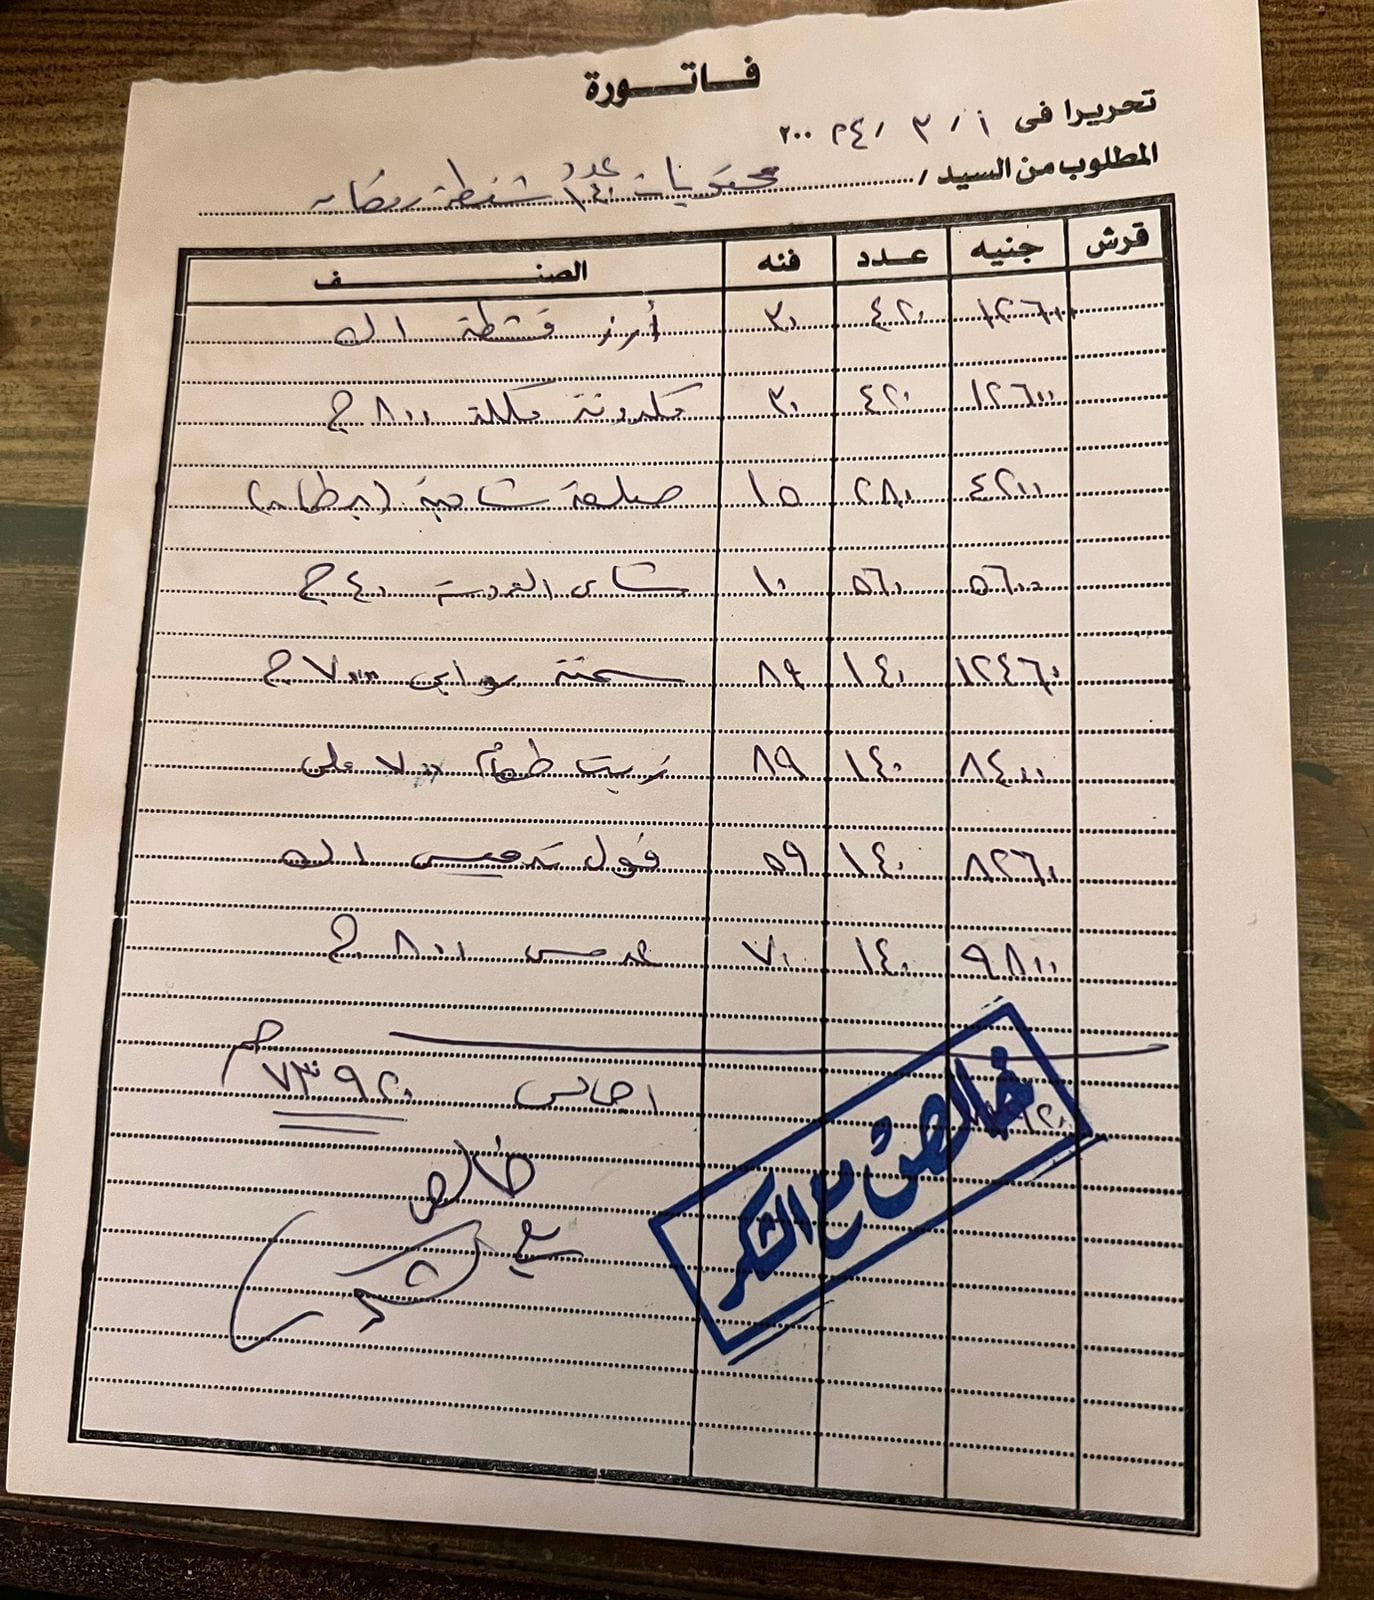 فاتورة
تحريرا في ١ / ٣ / ٢٤ ٢٠٠
المطلوب من السيد / محتويات عدد ١٤٠ شنطة رمضان
قرش جنيه عدد فئه الصنف
١٢٦٠٠ ٤٢٠ ٣٠ أرز قشطة ١ ك
١٢٦٠٠ ٤٢٠ ٣٠ مكرونة ملكة ٨٠٠ ج
٤٢٠٠ ٢٨٠ ١٥ صلصة شاهية (برطمان)
٥٦٠٠ ٥٦٠ ١٠ شاى العروسة ٤٠ ج
١٢٤٦٠ ١٤٠ ٨٩ سمنة روابي ٧٠٠ ج
٨٤٠٠ ١٤٠ ٨٩ زيت طعام ٧٠٠ ملى
٨٢٦٠ ١٤٠ ٥٩ فول تدميس ١ ك
٩٨٠٠ ١٤٠ ٧٠ عدس ٨٠٠ ج
اجمالى ٧٣٩٢٠ جم
خالص
مع
الشكر
خالص مع الشكر